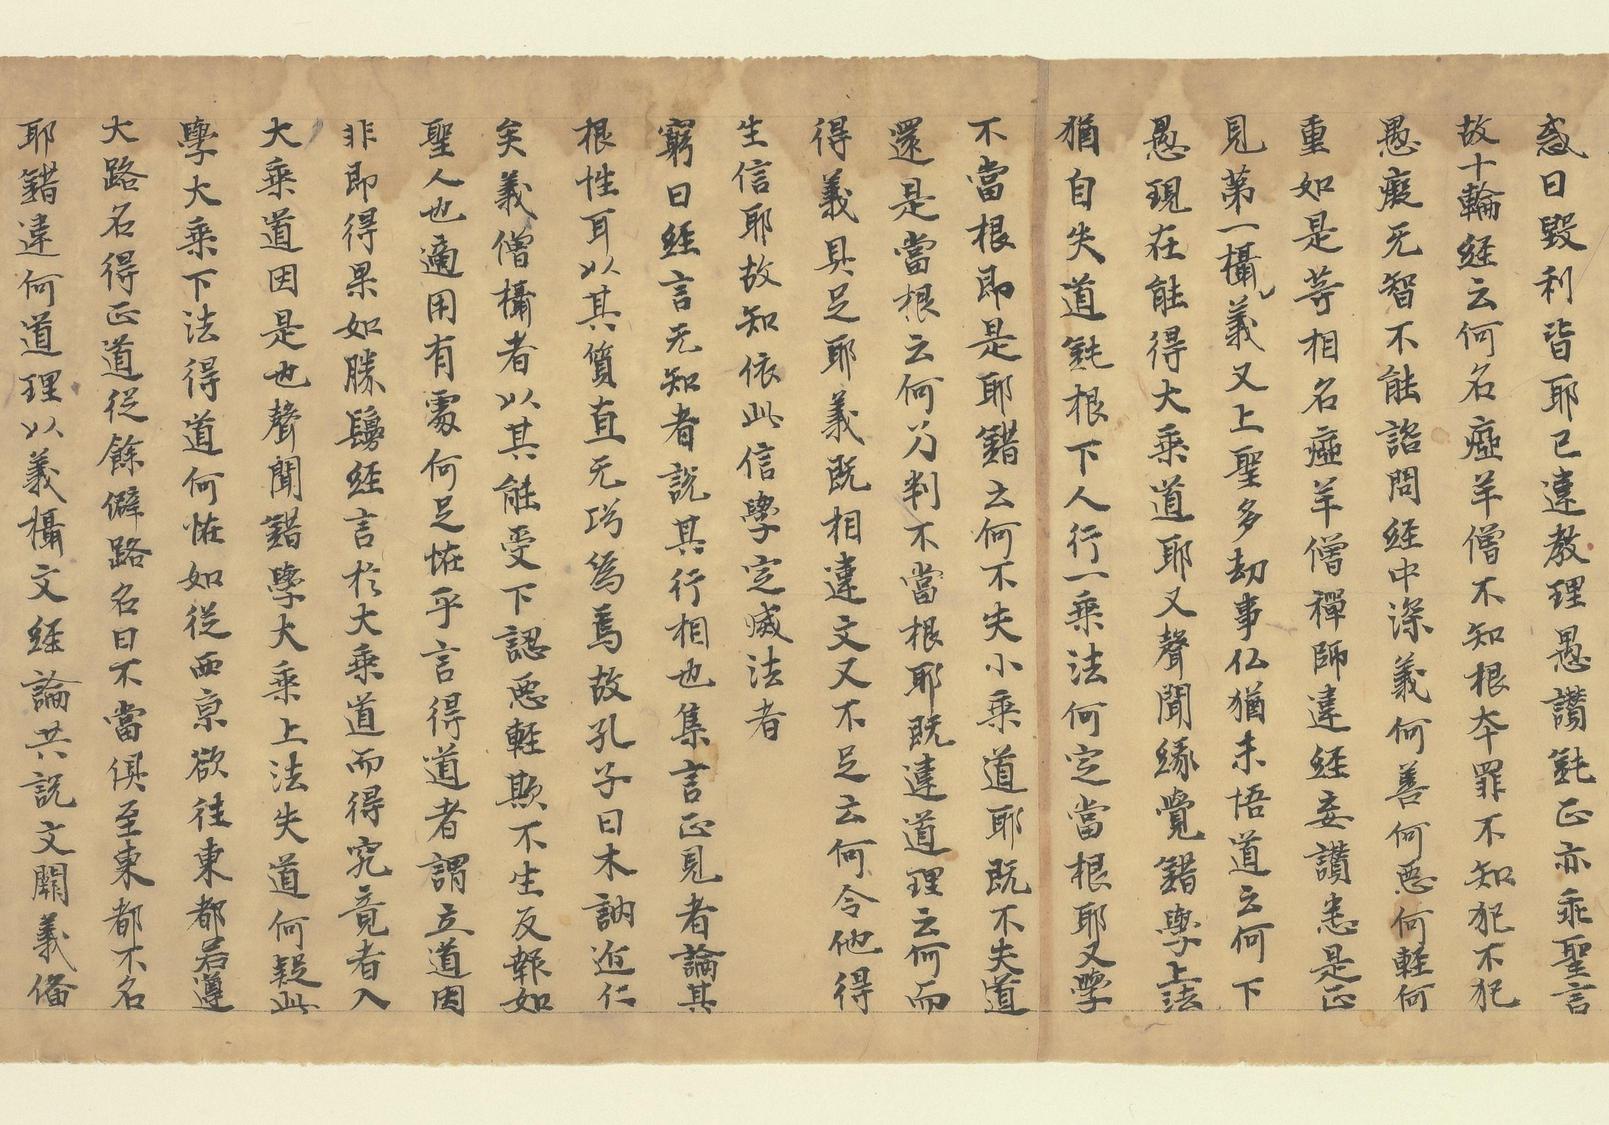 惑曰毀利皆耶已違教理愚讚鈍正亦乖聖言
故十輪経云何名瘂羊僧不知根夲罪不知犯不犯
愚癡无智不能諮問経中深義何善何惡何軽何
重如是等相名瘂羊僧禪師違経妄讚恚是正
見第一攝義又上聖多劫事仏猶未悟道云何下
愚現在能得大乘道耶又聲聞緣覺錯學上法
猶自失道鈍根下人行一乘法何定當根耶又學
不當根即是耶錯云何不失小乘道耶既不失道
還是當根云何乃判不當根耶既違道理云何而
得義具足耶義既相違文又不足云何令他得
生信耶故知依此信學定滅法者
窮曰経言无知者説其行相也集言正見者論其
根性耳以其質直无巧為焉故孔子曰木訥近仁
矣義僧攝者以其能受下認惡軽欺不生反報如
聖人也適用有處何足恠乎言得道者謂立道因
非即得果如勝鬘経言於大乘道而得究竟者入
大乘道因是也聲聞錯學大乘上法失道何疑此
學大乘下法得道何恠如從西京欲往東都若遵
大路名得正道從餘僻路名曰不當俱至東都不名
耶錯違何道理以義攝文経論共説文闕義俻